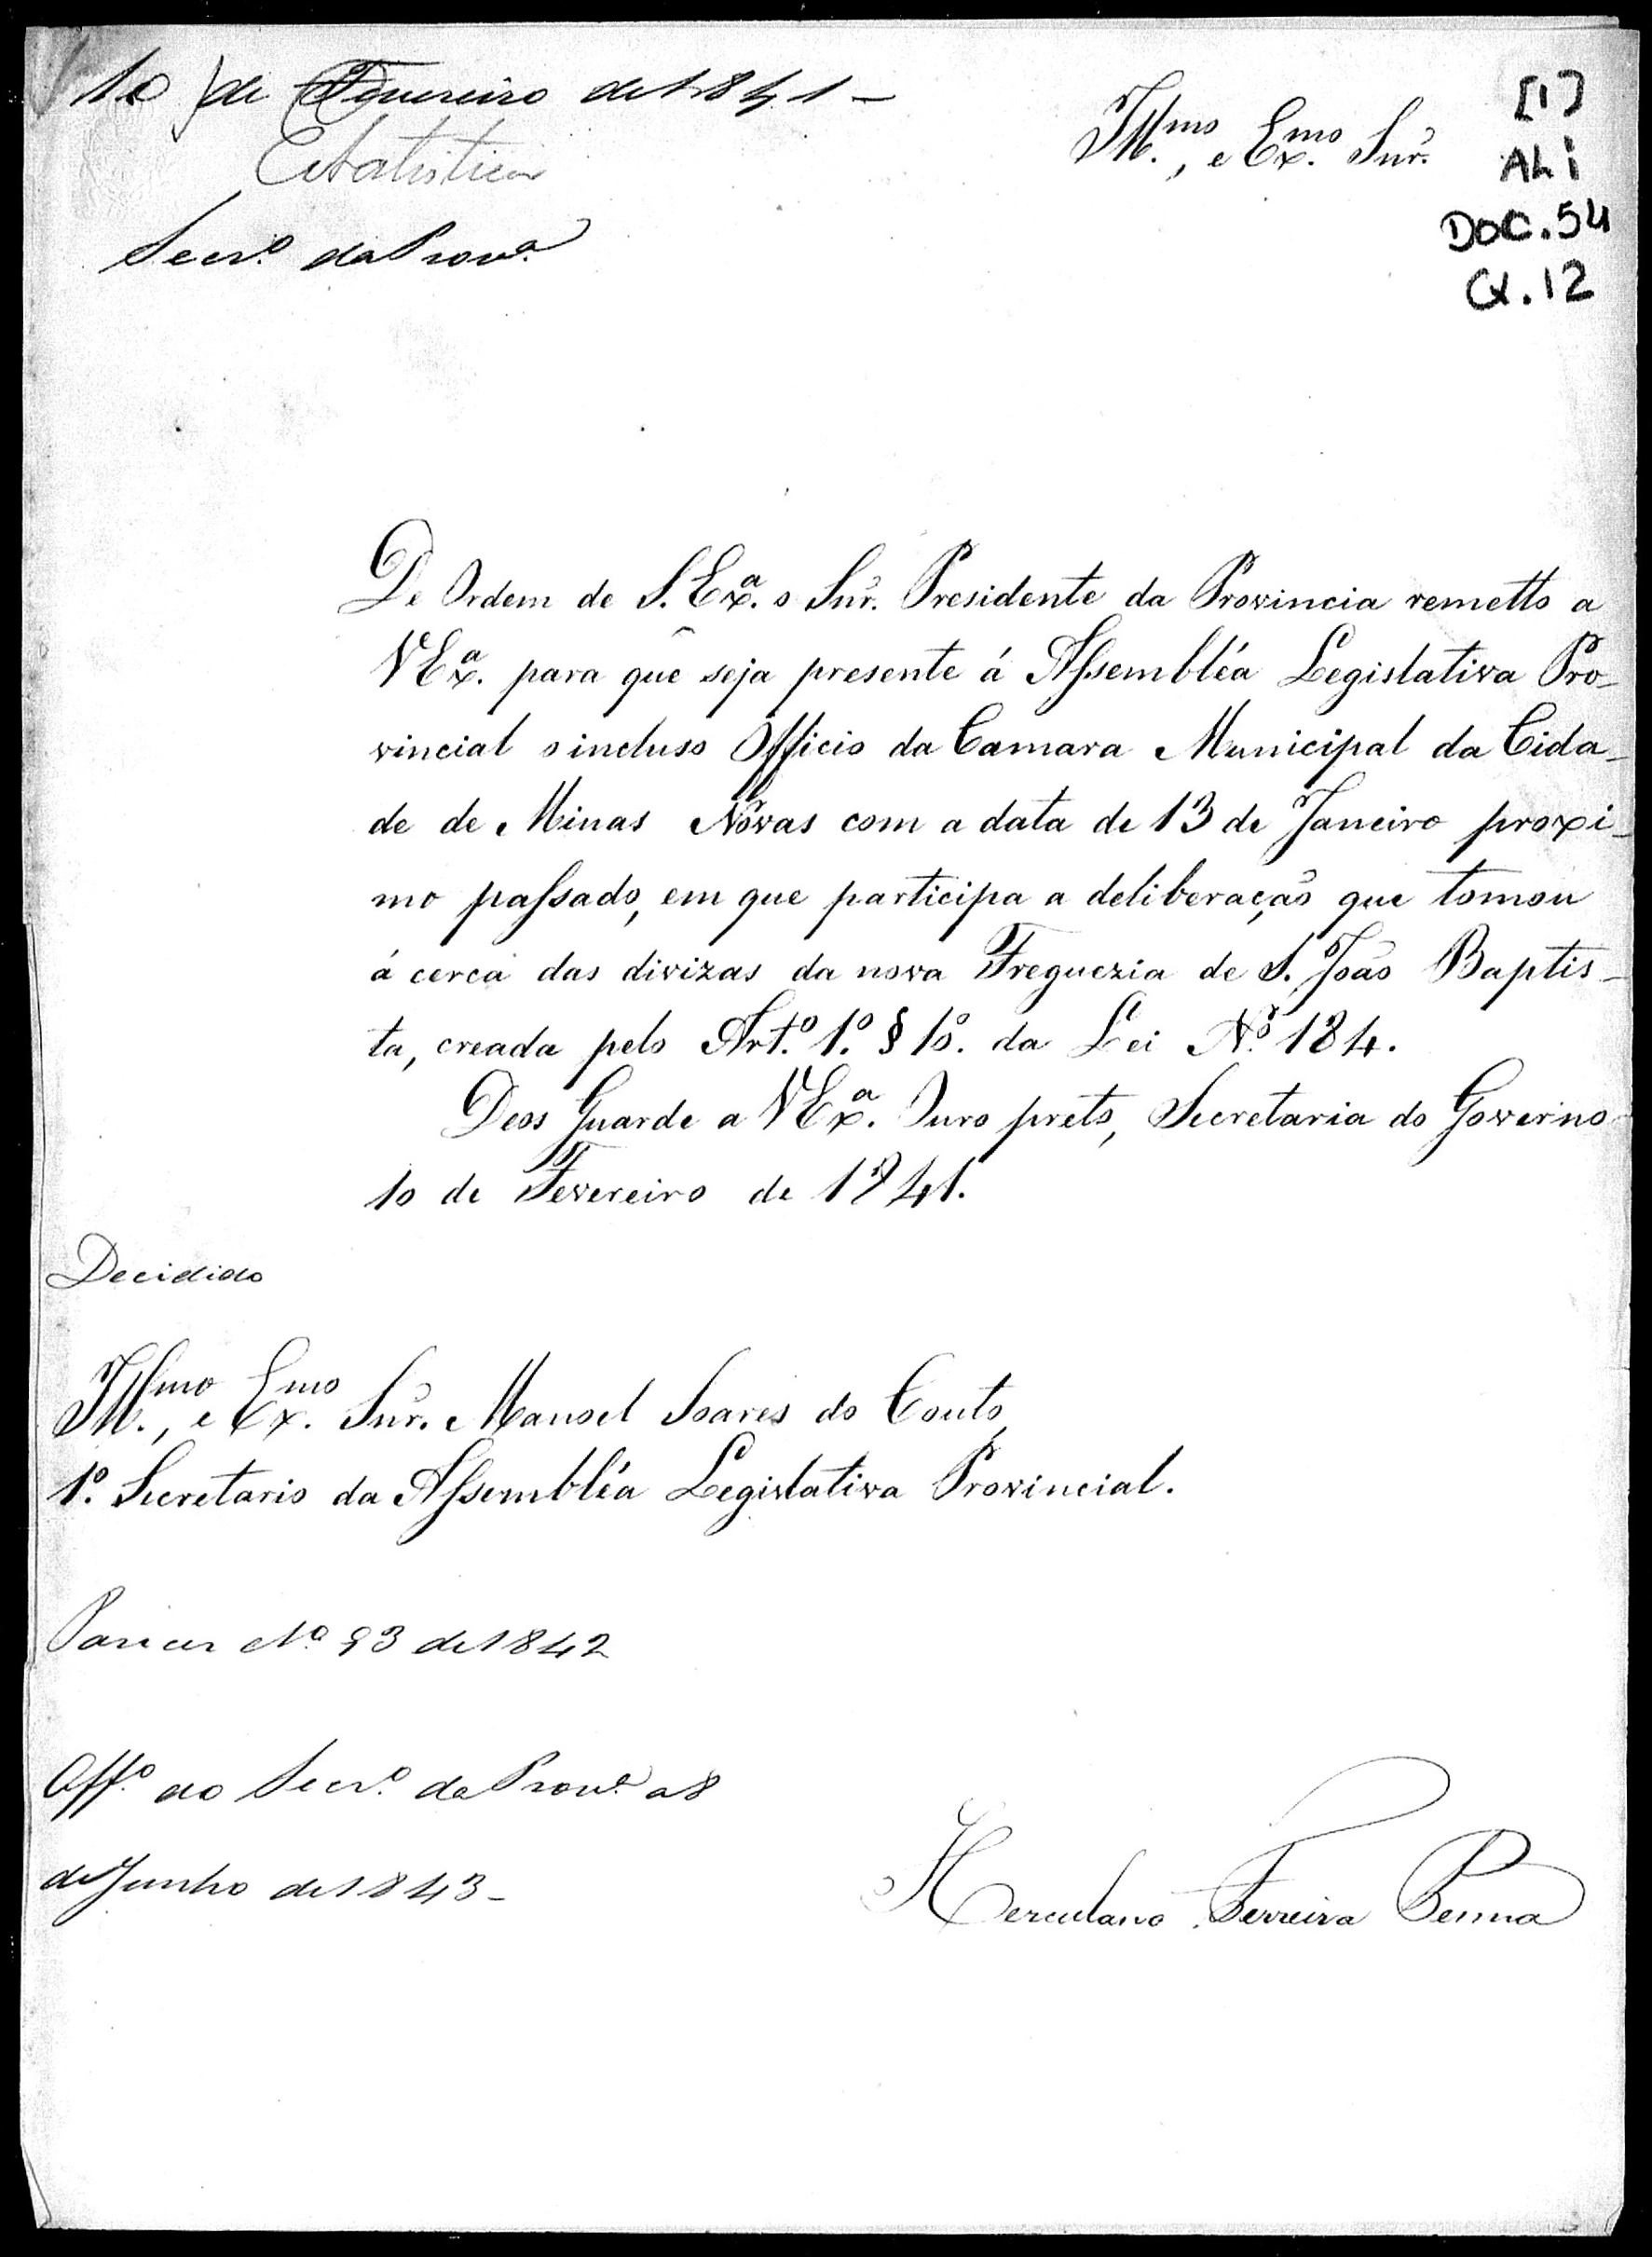 10 de Fevereiro de 1841 -
Estatistica
Secr.º da Prov.ª
Ill.mo, e Ex.mo Snr.
[1]
AL i
DOC. 54
CX. 12
De Ordem de S. Ex.ª o Snr. Presidente da Provincia remetto a
V Ex.ª para que seja presente á Assembléa Legislativa Pro-
vincial o incluso Officio da Camara Municipal da Cida-
de de Minas Novas com a data de 13 de Janeiro proxi-
mo passado, em que participa a deliberação que tomou
á cerca das divizas da nova Freguezia de S. João Baptis-
ta, creada pelo Art.º 1.º § 1º. da Lei N.º 184.
Deos Guarde a V Ex.ª Ouro preto, Secretaria do Governo
10 de Fevereiro de 1841.
Decidido
Ill.mo, e Ex.mo Snr. Manoel Soares do Couto,
1.º Secretario da Assembléa Legislativa Provincial.
Parecer Nº 93 de 1842
Off.º ao Secr.º da Prov.ª a 8
de Junho de 1843 -
Herculano Ferreira Penna